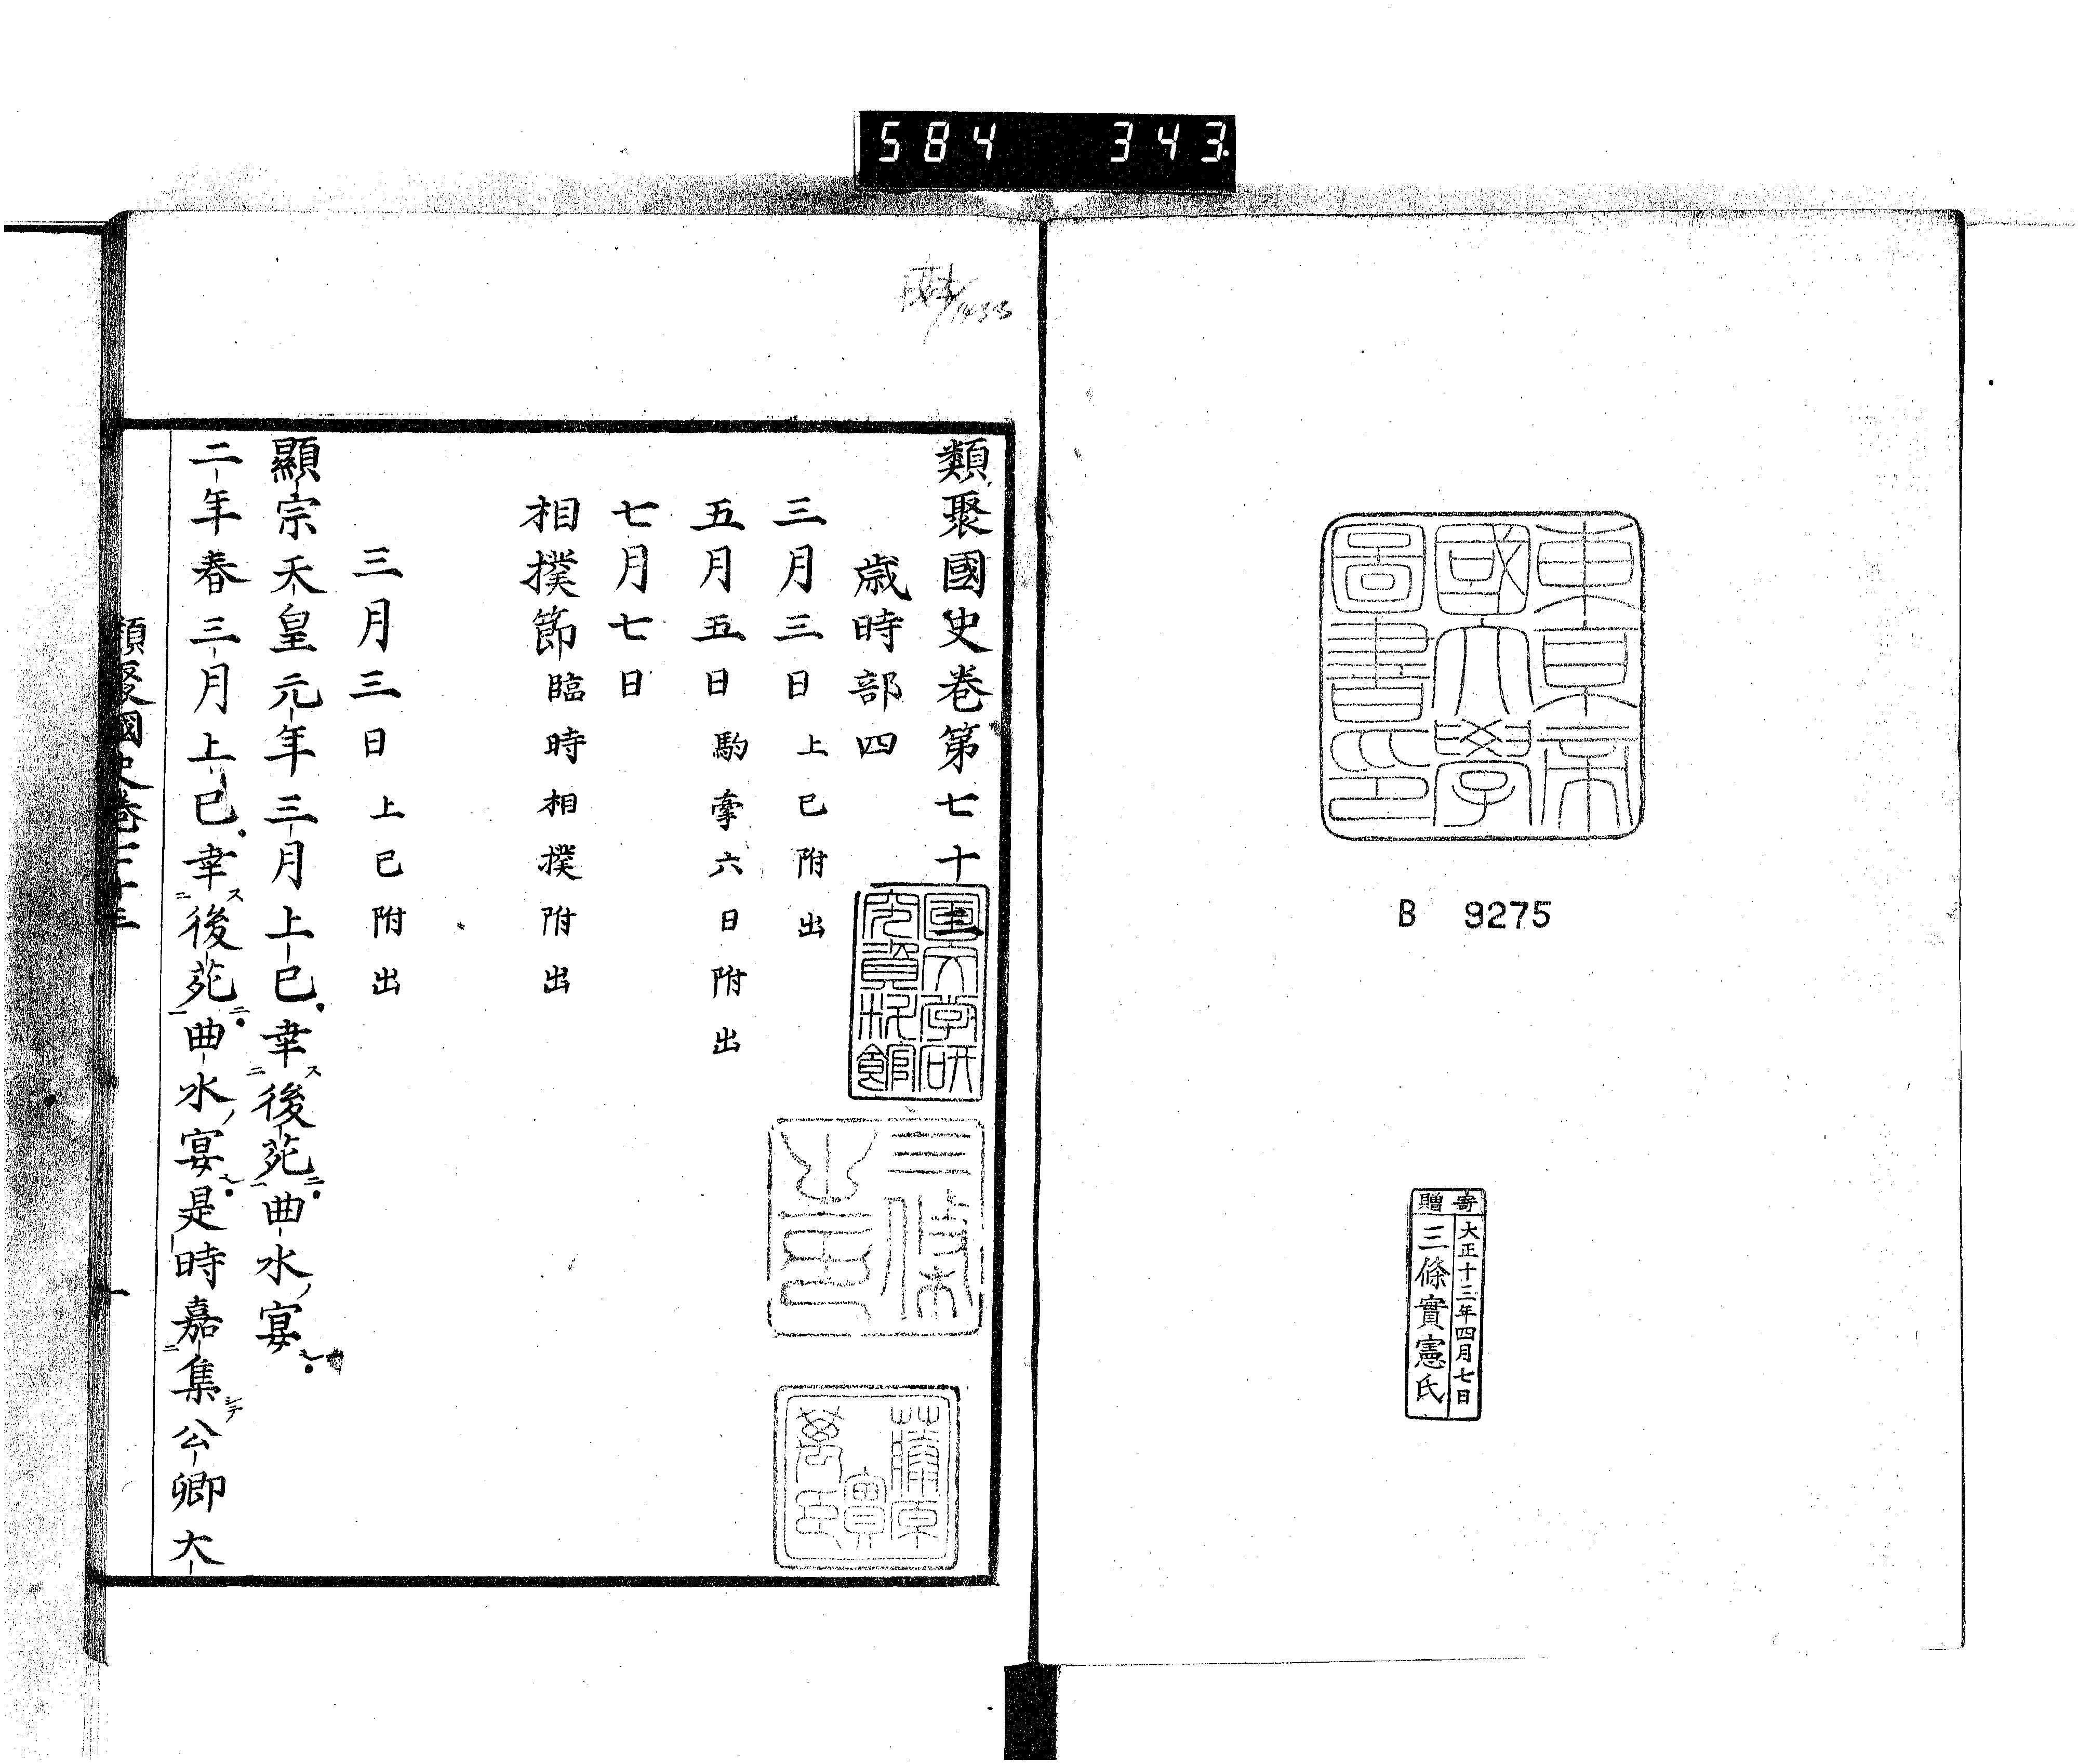 584 343
東京帝
國大學
圖書印
B 9275
寄贈
大正十二年四月七日
三條實憲氏
1433
類聚國史卷第七十三
國文学研
究資料館
三條
藤原
實
萬
歲時部四
三月三日上巳附出
五月五日駒牽六日附出
七月七日
相撲節臨時相撲附出
三月三日上巳附出
顯宗天皇元年三月上巳幸ス二後苑一ニ曲水ノ宴
二年春三月上巳幸ス二後苑一ニ曲水ノ宴是時嘉二集シテ公卿大
類聚國史卷七十三
一